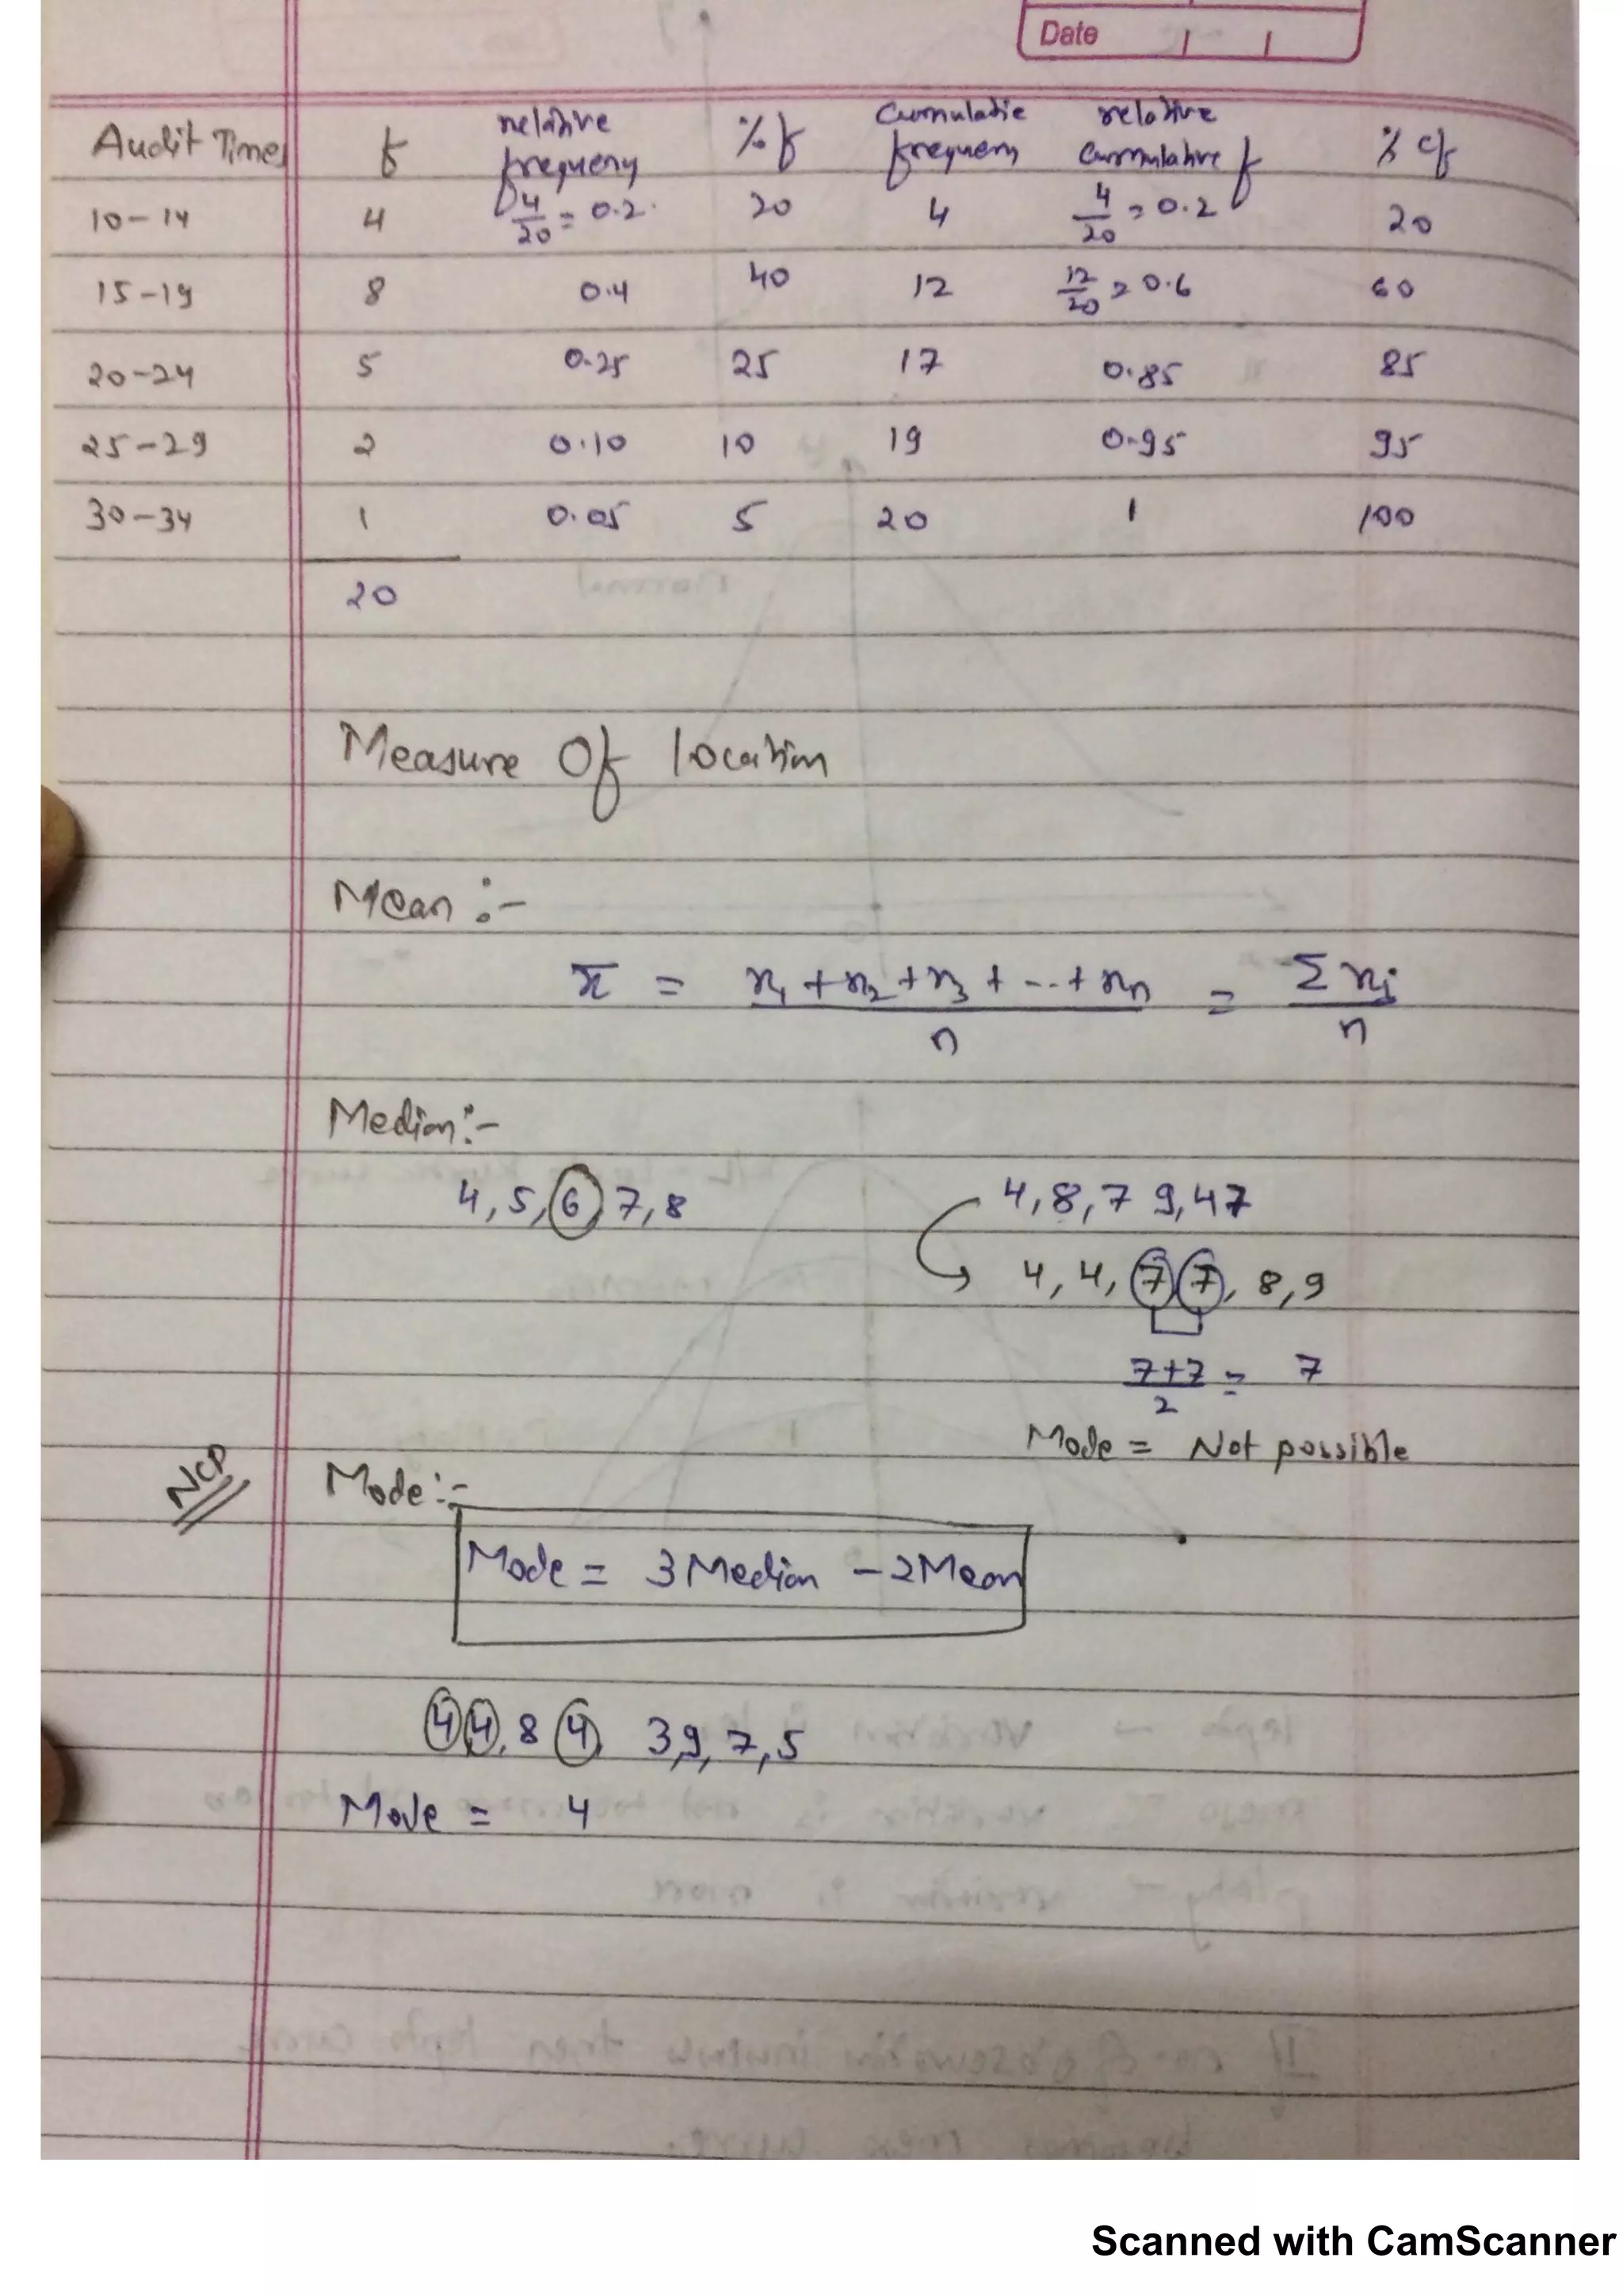 Date
Audit Time f relative frequency %f Cumulatie frequeny relative cummulative f % cf
10-14 4 4/20 = 0.2 20 4 4/20 = 0.2 20
15-19 8 0.4 40 12 12/20 = 0.6 60
20-24 5 0.25 25 17 0.85 85
25-29 2 0.10 10 19 0.95 95
30-34 1 0.05 5 20 1 100
20
Measure Of location
Mean :-
x̄ = x1 + x2 + x3 + -- + xn / n = Σxi / n
Median :-
4, 5, 6, 7, 8 4, 8, 7 9, 4 7
4, 4, 7 7, 8, 9
7+7 / 2 = 7
Mode = Not possible
NCP Mode :-
Mode = 3 Median - 2 Mean
4 4, 8 4, 3, 9, 7, 5
Mode = 4
Scanned with CamScanner